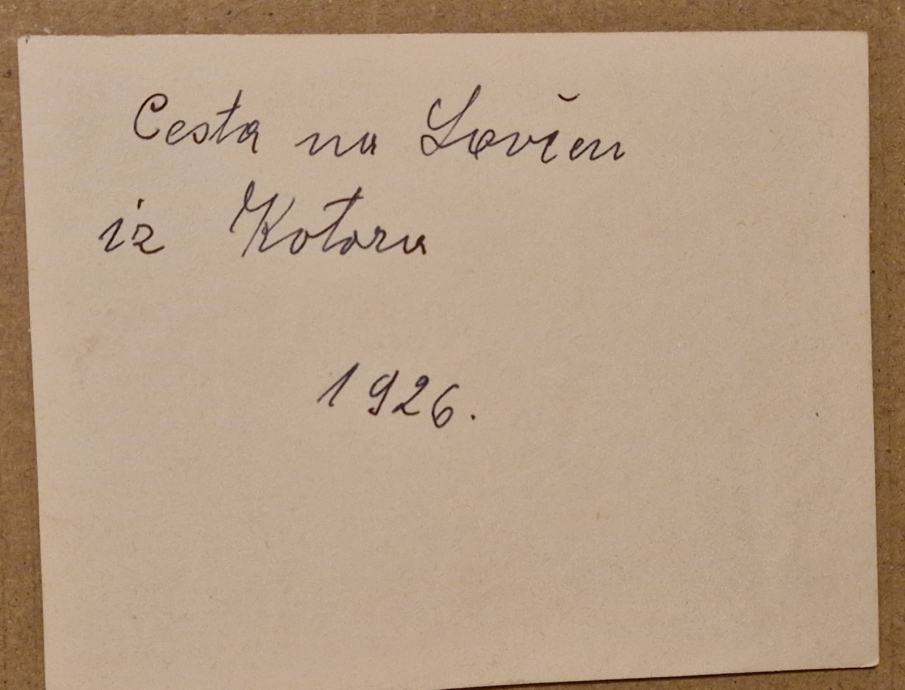 Cesta na Lovčen
iz Kotora
1926.